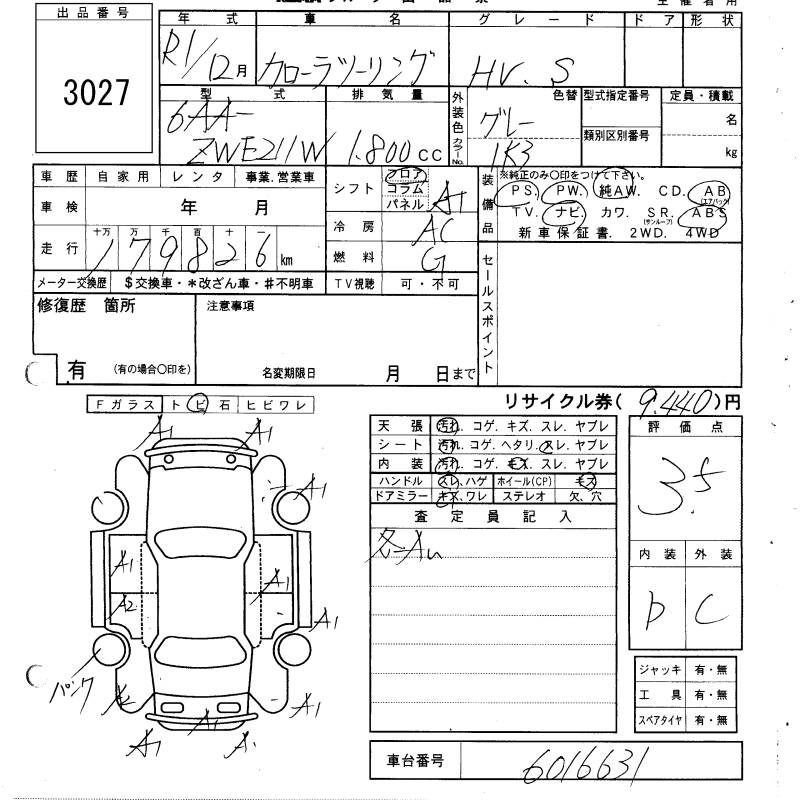 出品番号
3027
年式 車名 グレード ドア 形状
R1/12月 カローラツーリング HV.S
型式 排気量 外装色 カラーNo. 色替 型式指定番号 定員・積載
6AA-
ZWE211W 1.800cc グレー 1K3 類別区別番号 名 kg
車歴 自家用 レンタ 事業.営業車
車検 年 月
走行 十万 万 千 百 十 一
179826km
メーター交換歴 $交換車・*改ざん車・#不明車
シフト フロア コラム パネル A1
冷房 AC
燃料 G
TV視聴 可・不可
装備品 ※純正のみ○印をつけて下さい。
PS. PW. 純AW. CD. AB(エアバック)
TV. ナビ. カワ. SR.(サンルーフ) ABS
新車保証書. 2WD. 4WD
セールスポイント
修復歴 箇所 注意事項
有 (有の場合○印を) 名変期限日 月 日まで
リサイクル券(9.440)円
Fガラス トビ石 ヒビワレ
A1 A1
A1
A1
A1
A2
A1
パンク
A2 A1
A1
A1 A1
天張 汚れ. コゲ. キズ. スレ. ヤブレ
シート 汚れ. コゲ. ヘタリ. スレ. ヤブレ
内装 汚れ. コゲ. キズ. スレ. ヤブレ
ハンドル スレ、ハゲ ホイール(CP) キズ
ドアミラー キズ、ワレ ステレオ 欠、穴
査定員記入
各-AU
評価点
3.5
内装 外装
D C
ジャッキ 有・無
工具 有・無
スペアタイヤ 有・無
車台番号 6016631